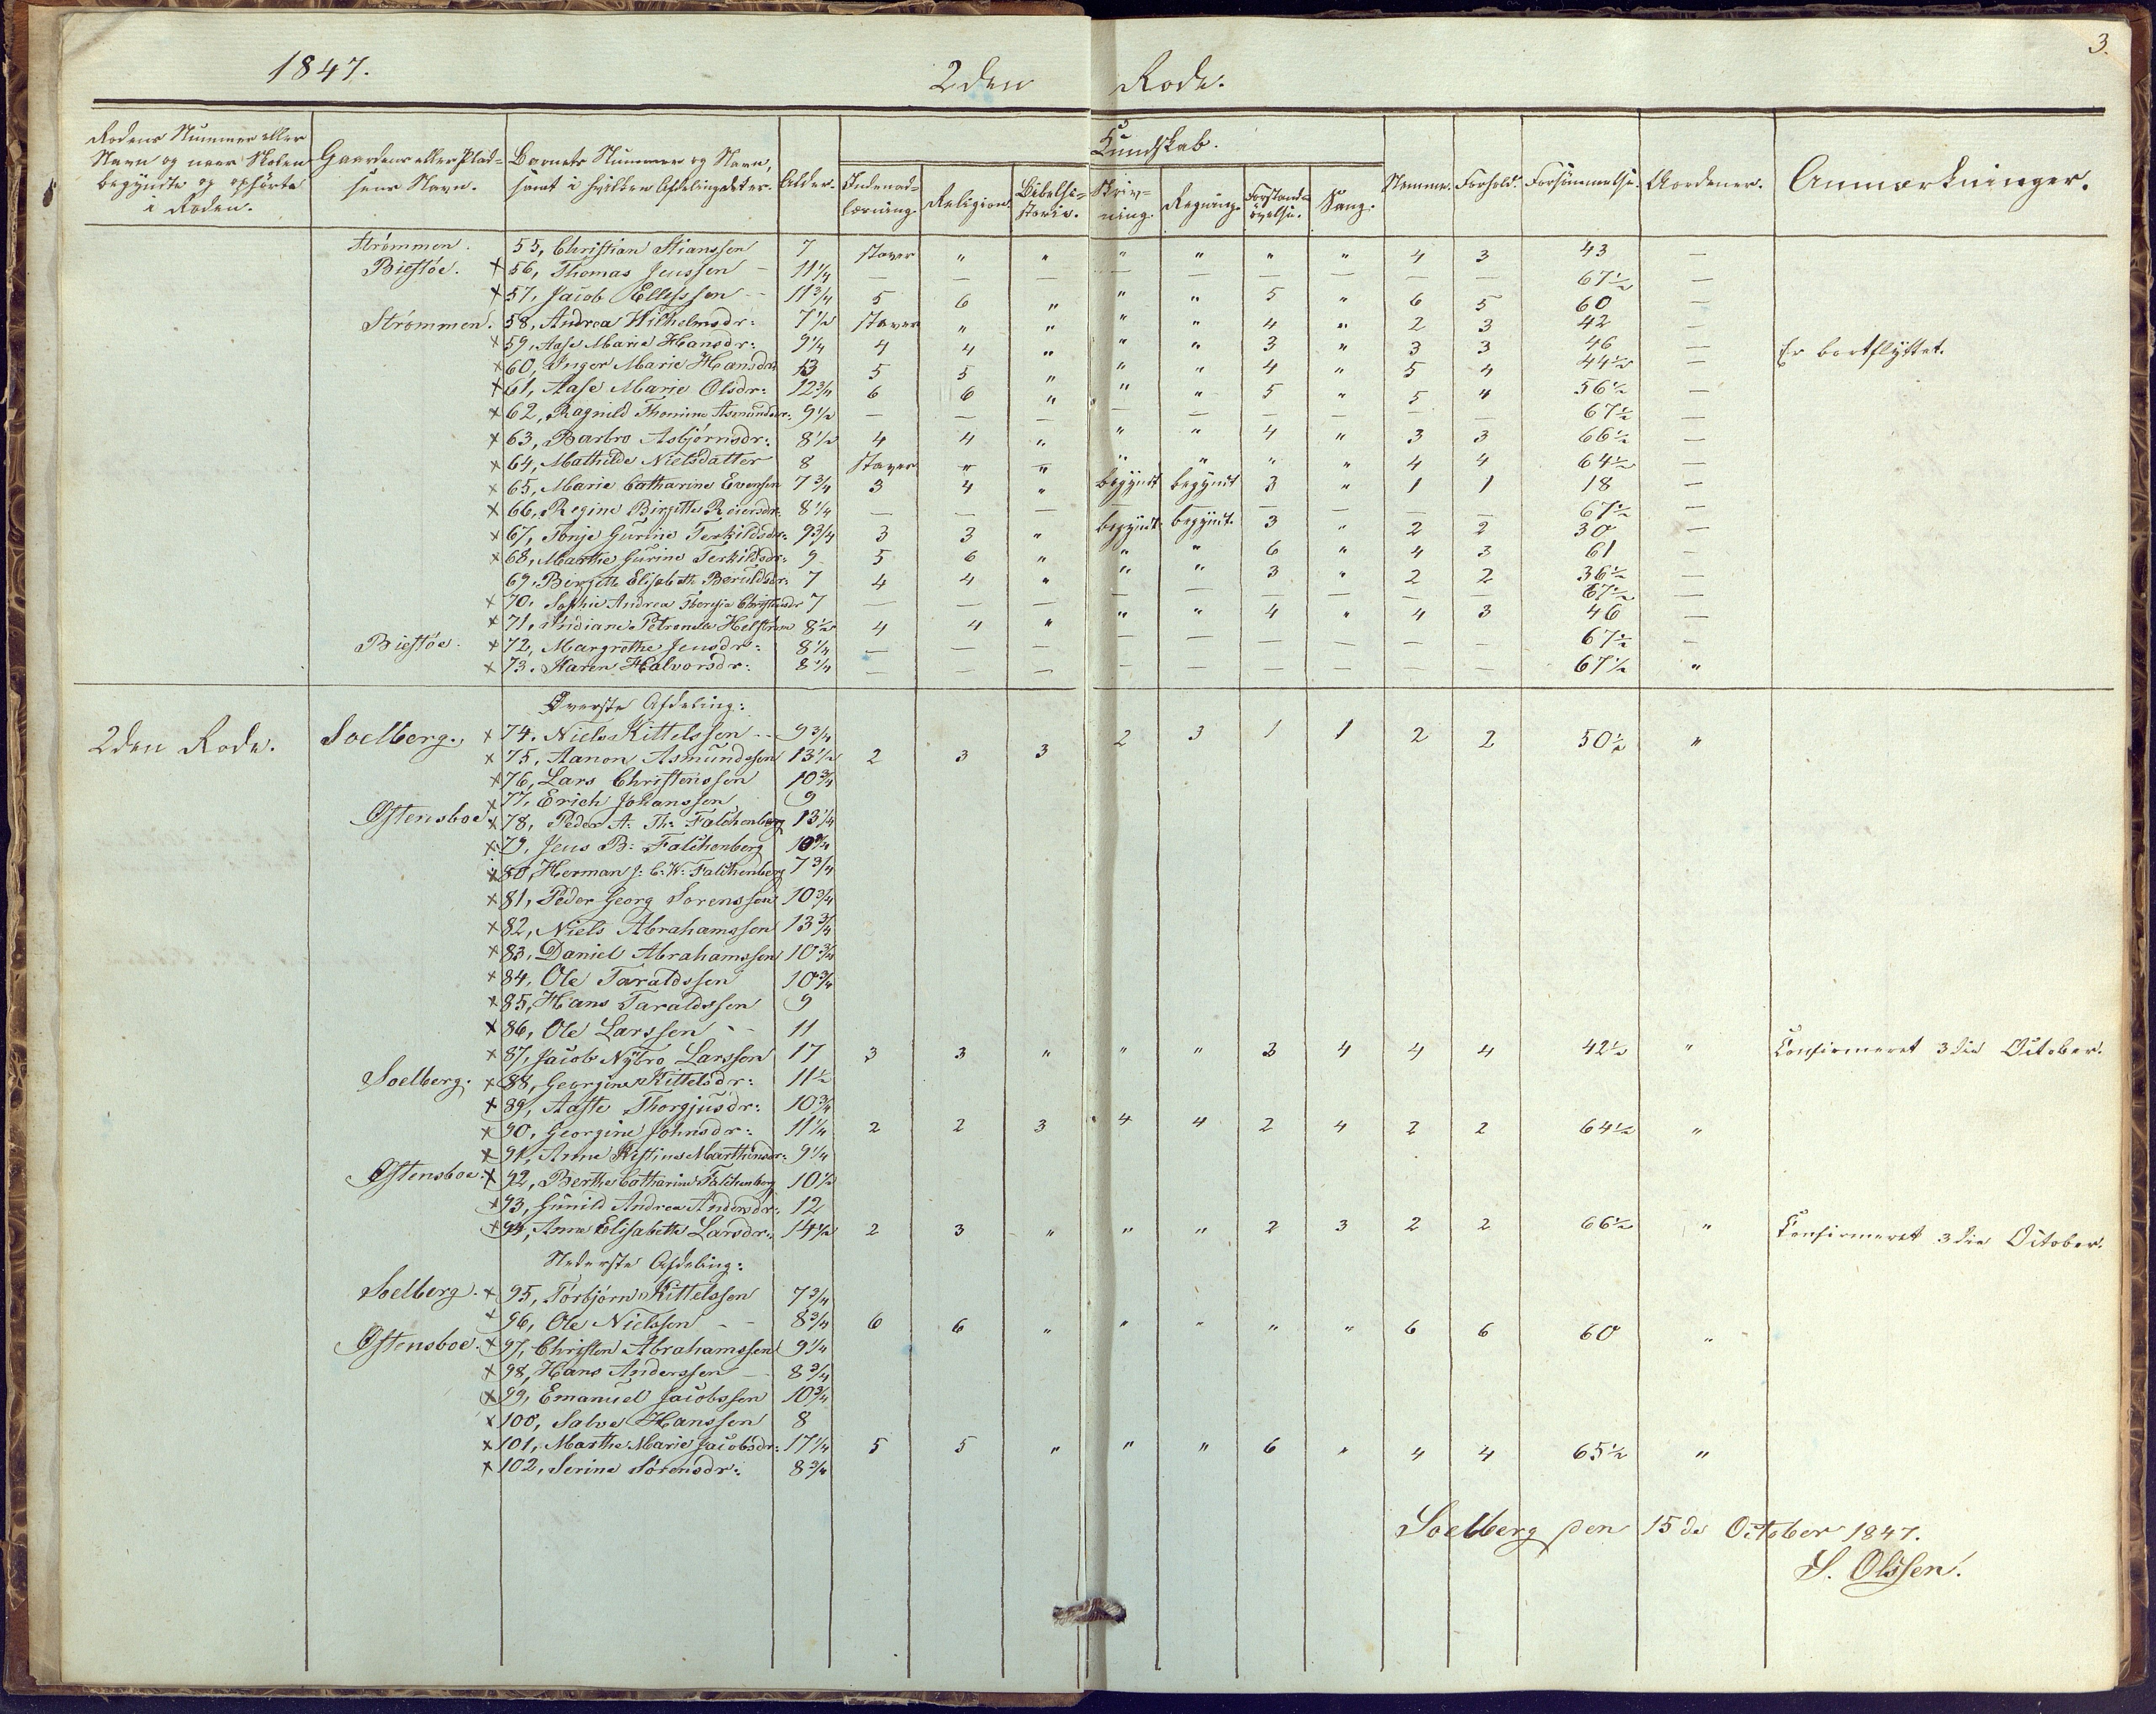 1847.
2den Rode.
3.
Rodens Nummer eller Navn og naar Skolen begyndte og ophørte i Roden.
Gaardens eller Pladsens Navn.
Barnets Nummer og Navn, samt i hvilken Afdeling det er.
Alder.
Kundskab.
Indenadlæsning.
Religion.
Bibelhistorie.
Skrivning.
Regning.
Forstandsøvelse.
Sang.
Nemme.
Forhold.
Forsømmelse.
Aordener.
Anmærkninger.
Strømmen. 55, Christian Stianssen 7 staver " " " " " " 4 3 43 —
Biestøe. x 56, Thomas Jenssen – 11 1/4 — — — — — — — — — 67 1/2 —
x 57, Jacob Ellefssen – 11 3/4 5 6 " " " 5 " 6 5 60 —
Strømmen. 58, Andrea Wilhelmsdr: 7 1/2 staver " " " " 4 " 2 3 42 —
x 59, Aase Marie Hansdr: 9 1/4 4 4 " " " 3 " 3 3 46 — Er bortflyttet.
x 60, Inger Marie Hansdr: 13 5 5 " " " 4 " 5 4 44 1/2 —
x 61, Aase Marie Olsdr: 12 3/4 6 6 " " " 5 " 5 4 56 1/2 —
x 62, Ragnild Thomine Asmundsdr: 9 1/2 — — — — — — — — — 67 1/2 —
x 63, Barbro Asbjørnsdr: 8 1/2 4 4 " " " 4 " 3 3 66 1/2 —
x 64, Mathilde Nielsdatter 8 staver " " " " " " 4 4 64 1/2 —
x 65, Marie Catharine Evensen 7 3/4 3 4 " begyndt begyndt 3 " 1 1 18 —
x 66, Regine Birgitte Reiersdr: 8 1/4 — — — — — — — — — 67 1/2 —
x 67, Tonje Gurine Terkildsdr: 9 3/4 3 3 " begyndt. begyndt. 3 " 2 2 30 —
x 68, Marthe Gurine Terkildsdr: 9 5 6 " " " 6 " 4 3 61 –
69, Bergitte Elisabeth Beruldsdr: 7 4 4 " " " 3 " 2 2 36 1/2 —
x 70. Sophie Andrea Theresia Christiansdr 7 — — — — — — — — — 67 1/2 —
x 71, Petronelle Helstrøm 8 1/2 4 4 " " " 4 " 4 3 46 —
Biestøe. x 72, Margrethe Jensdr: 8 1/4 — — — — — — — — — 67 1/2 —
x 73. Karen Halvorsdr: 8 1/4 — — — — — — — — — 67 1/2 "
Øverste Afdeling:
2den Rode. Soelberg. x 74. Niels Kittelssen – 9 3/4
x 75, Aanon Asmundssen 13 1/2 2 3 3 2 3 1 1 2 2 50 1/2 "
x 76, Lars Christenssen 10 3/4
x 77, Erich Johanssen 9
Østensboe x 78, Peder A. Th: Falchenberg 13 1/4
x 79, Jens B: Falchenberg 10 3/4
x 80, Herman J: C. W: Falchenberg 7 3/4
x 81, Peder Georg Sorenssen 10 3/4
x 82, Niels Abrahamssen 13 3/4
x 83, Daniel Abrahamssen 10 3/4
x 84, Ole Taraldssen 10 3/4
x 85, Hans Taraldssen 9
x 86, Ole Larssen – 11
x 87, Jacob Nybro Larssen 17 3 3 " " " 3 4 4 4 42 1/2 " Confirmeret 3die October.
Soelberg. x 88, Georgine Kittelsdr: 11 1/2
x 89, Aaste Thorgjusdr: 10 3/4
x 90, Georgine Johnsdr: 11 1/4 2 2 3 4 4 2 4 2 2 64 1/2 "
x 91, Anne Kistine Marthinsdr: 9 1/4
Østensboe. x 92, Berthe Catharine Falchenberg 10 1/2
x 93, Gunild Andrea Andersdr: 12
x 94, Anne Elisabethe Larsdr: 14 1/2 2 3 " " " 2 3 2 2 66 1/2 " Confirmeret 3die October.
Nederste Afdeling:
Soelberg. x 95, Torbjørn Kittelssen 7 3/4
x 96, Ole Nielssen – – 8 3/4 6 6 " " " " " 6 6 60 "
Østensboe. x 97, Christen Abrahamssen 9 1/4
x 98, Hans Anderssen – 8 3/4
x 99, Emanuel Jacobssen 10 3/4
x 100, Salve Hanssen 8
x 101, Marthe Marie Jacobsdr: 17 1/4 5 5 " " " 6 " 4 4 65 1/2 "
x 102, Serine Sørensdr: 8 3/4
Soelberg den 15de October 1847.
S. Olssen.